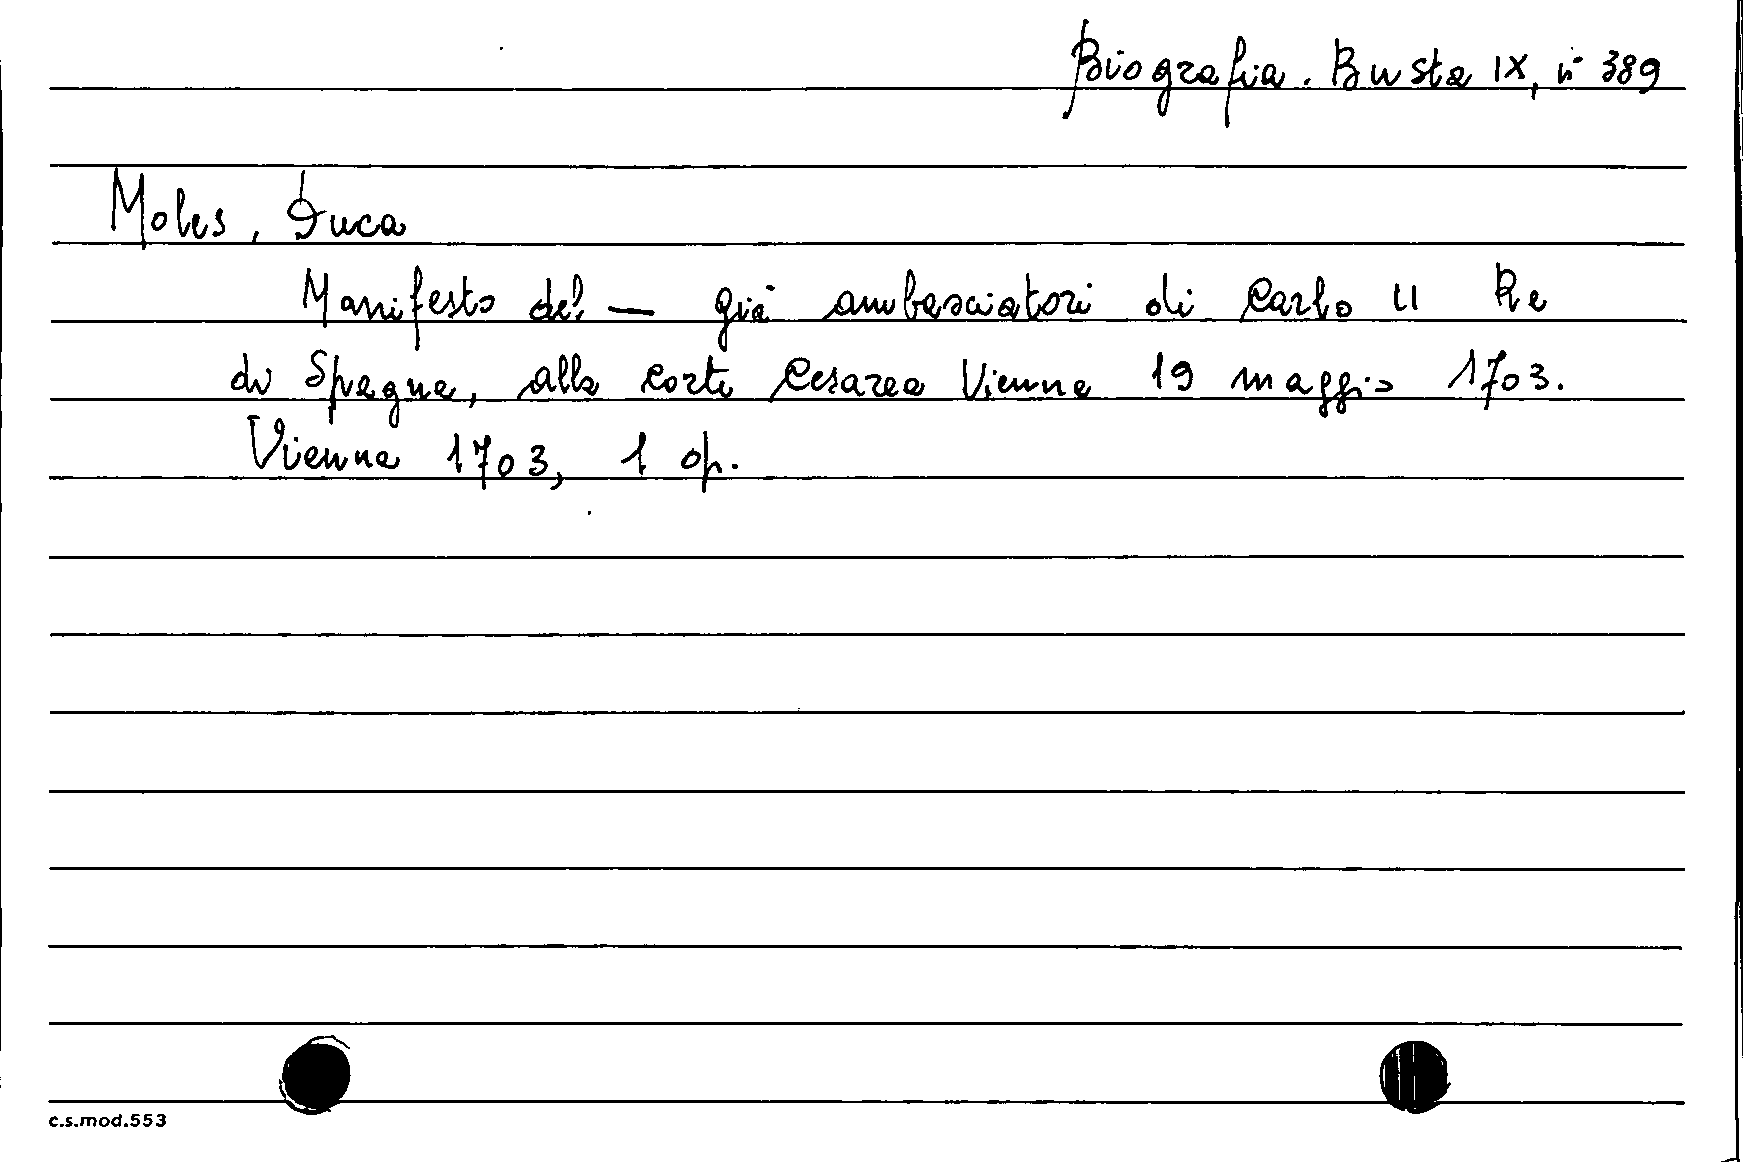 Biografia. Busta IX, n° 389
Moles, Duca
Manifesto del — già ambasciatori di Carlo II Re
di Spagna, alla corte Cesarea Vienna 19 maggio 1703.
Vienna 1703, 1 op.
c.s.mod.553